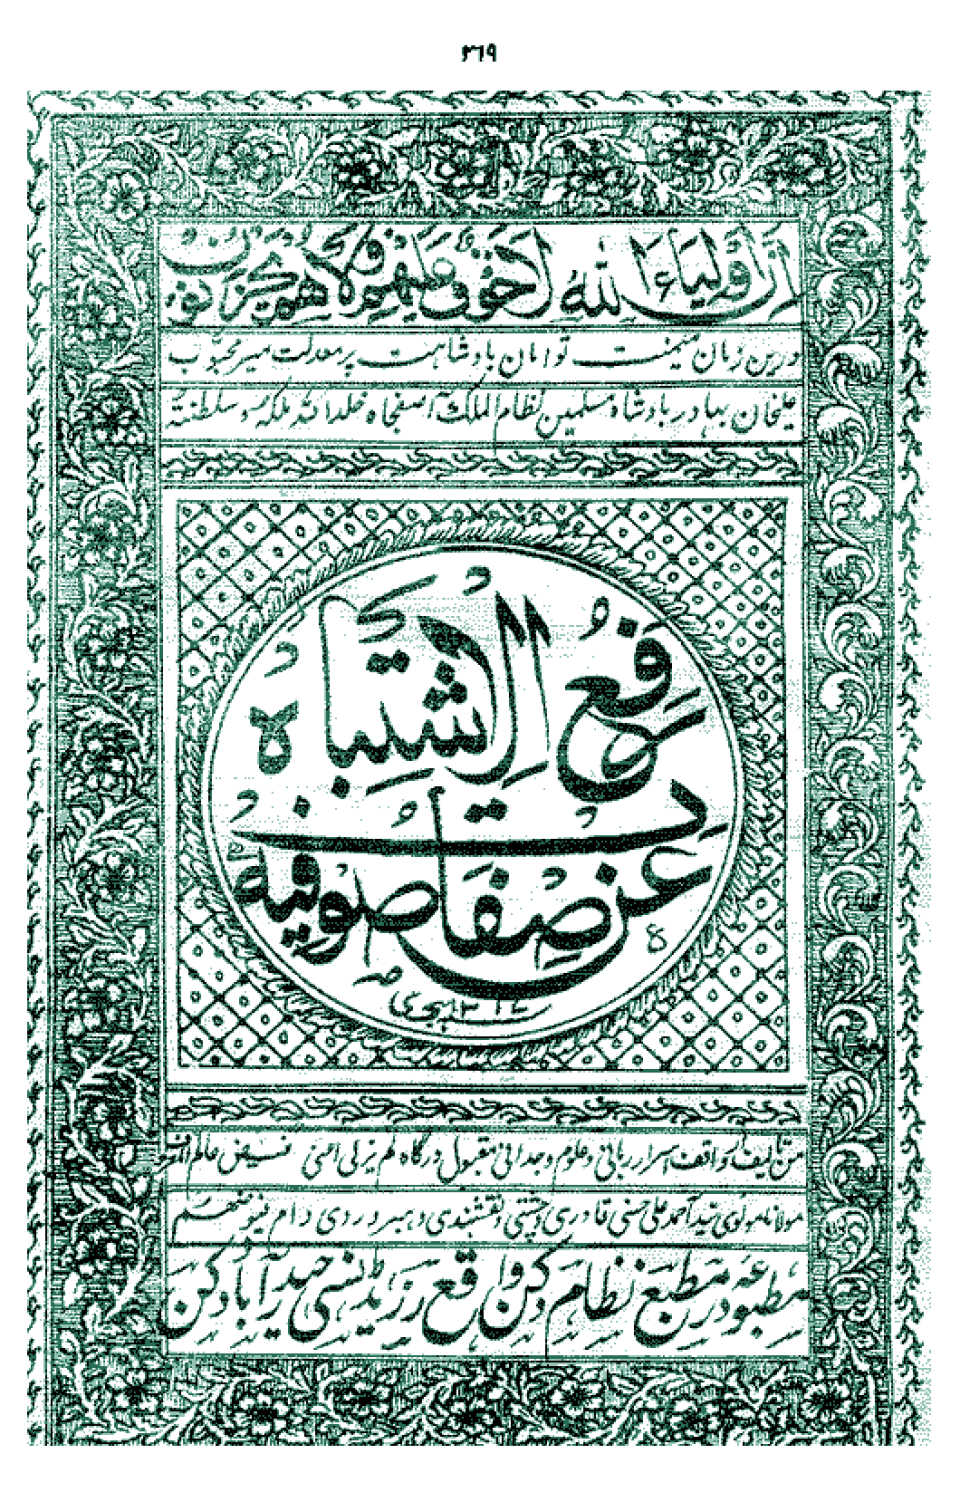 ۳۶۹
ان اولیاء الله لا خوف علیهم ولا هم یحزنون
درین زمان میمنت توامان بادشاهت پر معدلت میر محبوب
علیخان بهادر بادشاه مسلمین نظام الملک آصفجاه خلد الله ملکه و سلطنته
رفع الاشتباه
عن صفات صوفیة
۱۳۱۷ هجری
من تالیف واقف اسرار ربانی و علوم وجدانی مقبول درگاه لم یزلی اعنی
مولانا مولوی سید احمد علی حسنی قادری و چشتی و نقشبندی و سهروردی دام فیوضهم
مطبوعه در مطبع نظام دکن واقع رزیڈنسی حیدرآباد دکن